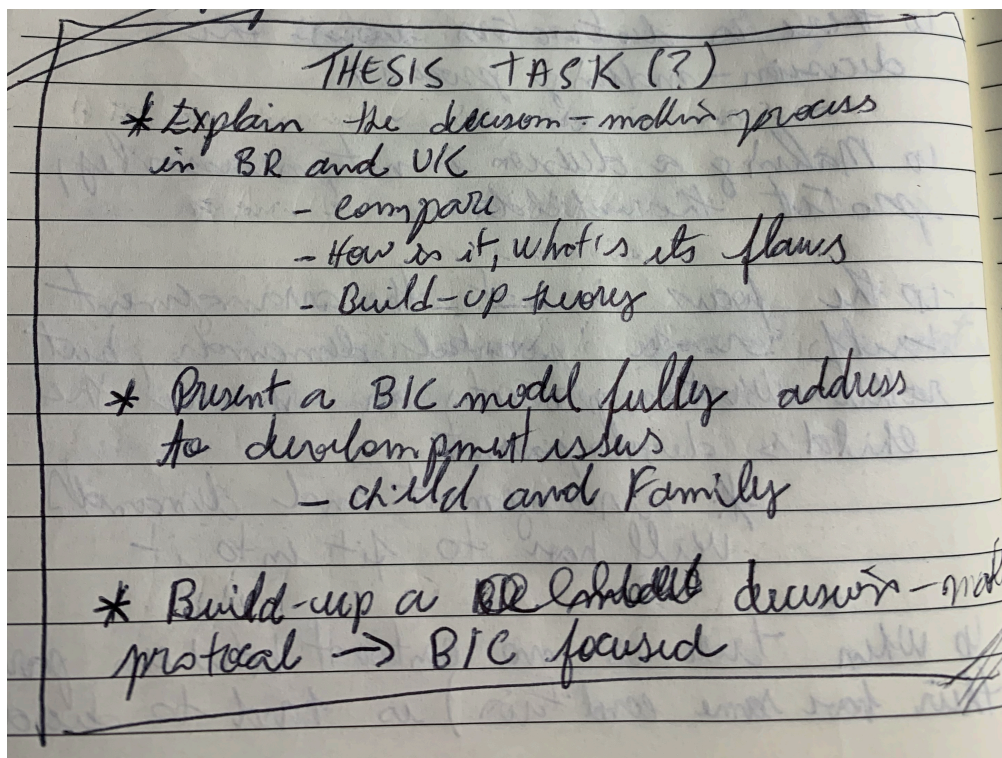 THESIS TASK (?)
* Explain the decison-makin process
in BR and UK
- compare
- How is it, what's its flaws
- Build-up theory
* Present a BIC model fully address
to development issus
- child and Family
* Build-up a decision-mak
protocal → BIC focused